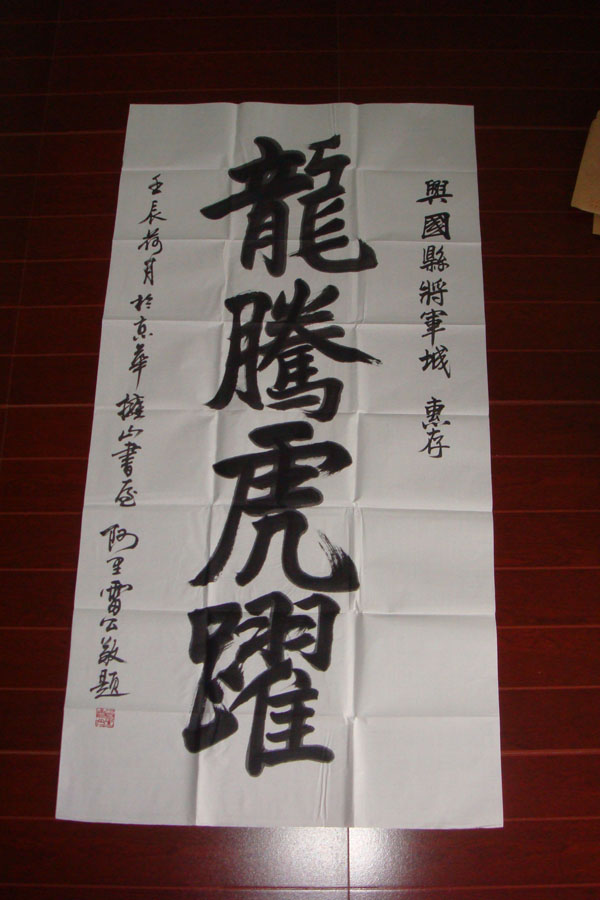 興國縣將軍城 惠存
龍騰虎躍
壬辰荷月於京華擁山書屋 阿里雷公敬題